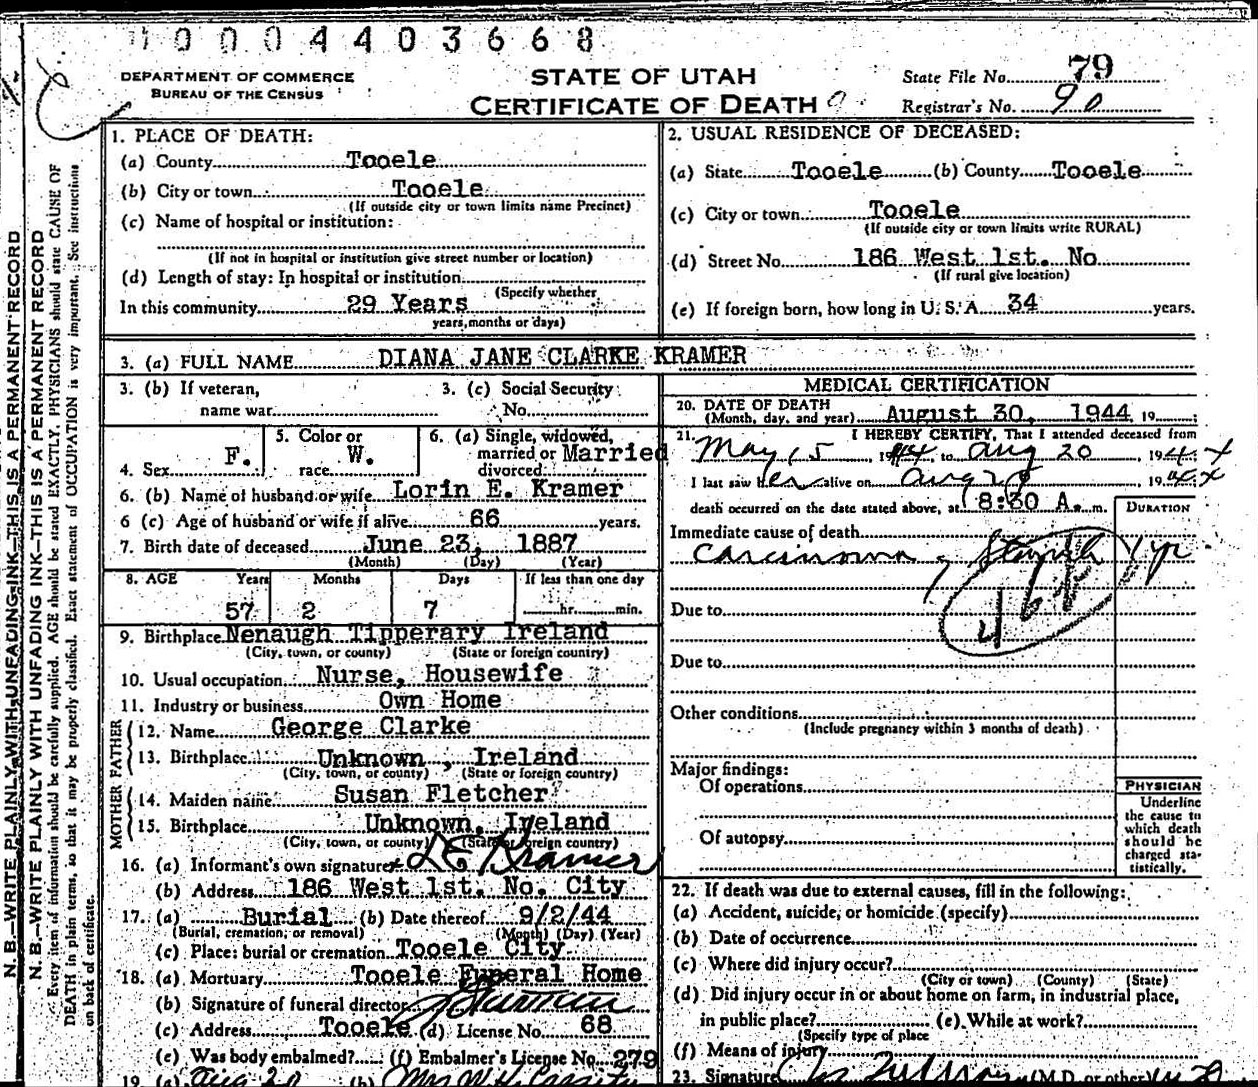 1 0 0 0 4 4 0 3 6 6 8
DEPARTMENT OF COMMERCE
BUREAU OF THE CENSUS
STATE OF UTAH
CERTIFICATE OF DEATH
State File No. 79
Registrar's No. 90
N. B.—WRITE PLAINLY WITH UNFADING INK—THIS IS A PERMANENT RECORD
N. B.—WRITE PLAINLY WITH UNFADING INK—THIS IS A PERMANENT RECORD
Every item of information should be carefully supplied. AGE should be stated EXACTLY. PHYSICIANS should state CAUSE OF
DEATH in plain terms, so that it may be properly classified. Exact statement of OCCUPATION is very important. See instructions
on back of certificate.
1. PLACE OF DEATH:
(a) County Tooele
(b) City or town Tooele
(If outside city or town limits name Precinct)
(c) Name of hospital or institution:
(If not in hospital or institution give street number or location)
(d) Length of stay: In hospital or institution
(Specify whether
In this community 29 Years
years, months or days)
2. USUAL RESIDENCE OF DECEASED:
(a) State Tooele (b) County Tooele
(c) City or town Tooele
(If outside city or town limits write RURAL)
(d) Street No. 186 West 1st. No
(If rural give location)
(e) If foreign born, how long in U. S. A. 34 years.
3. (a) FULL NAME DIANA JANE CLARKE KRAMER
3. (b) If veteran,
name war
3. (c) Social Security
No.
4. Sex F.
5. Color or
race W.
6. (a) Single, widowed,
married or Married
divorced
6. (b) Name of husband or wife Lorin E. Kramer
6 (c) Age of husband or wife if alive 66 years.
7. Birth date of deceased June 23, 1887
(Month) (Day) (Year)
8. AGE Years Months Days If less than one day
57 2 7 hr. min.
9. Birthplace Nenaugh Tipperary Ireland
(City, town, or county) (State or foreign country)
10. Usual occupation Nurse, Housewife
11. Industry or business Own Home
FATHER
12. Name George Clarke
13. Birthplace Unknown, Ireland
(City, town, or county) (State or foreign country)
MOTHER
14. Maiden name Susan Fletcher
15. Birthplace Unknown, Ireland
(City, town, or county) (State or foreign country)
16. (a) Informant's own signature L E Kramer
(b) Address 186 West 1st. No. City
17. (a) Burial (b) Date thereof 9/2/44
(Burial, cremation, or removal) (Month) (Day) (Year)
(c) Place: burial or cremation Tooele City
18. (a) Mortuary Tooele Funeral Home
(b) Signature of funeral director
(c) Address Tooele (d) License No. 68
(e) Was body embalmed? (f) Embalmer's License No. 279
19. (a) Aug 20 (b) Mrs W H
MEDICAL CERTIFICATION
20. DATE OF DEATH
(Month, day, and year) August 30, 1944, 19
21. I HEREBY CERTIFY, That I attended deceased from
May 15 1944 to Aug 20, 1944
I last saw her alive on Aug 1944
death occurred on the date stated above, at 8:30 A. m.
DURATION
Immediate cause of death
Carcinoma, Stomach 1 yr
46
Due to
Due to
Other conditions
(Include pregnancy within 3 months of death)
Major findings:
Of operations
Of autopsy
PHYSICIAN
Underline
the cause to
which death
should be
charged sta-
tistically.
22. If death was due to external causes, fill in the following:
(a) Accident, suicide, or homicide (specify)
(b) Date of occurrence
(c) Where did injury occur?
(City or town) (County) (State)
(d) Did injury occur in or about home on farm, in industrial place,
in public place? (e) While at work?
(Specify type of place
(f) Means of injury
23. Signature (M.D. or other)